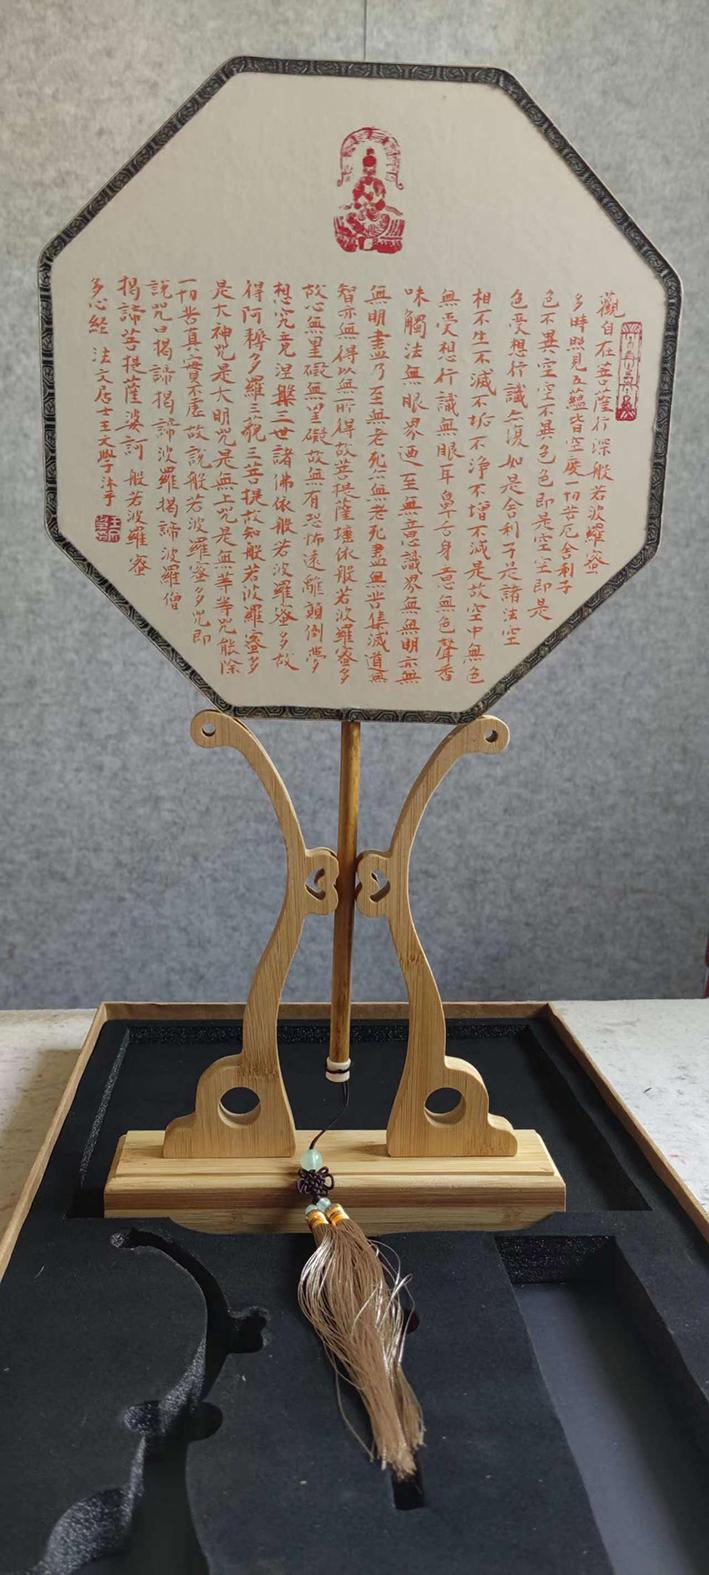 觀自在菩薩行深般若波羅蜜
多時照見五蘊皆空度一切苦厄舍利子
色不異空空不異色色即是空空即是
色受想行識亦復如是舍利子是諸法空
相不生不滅不垢不淨不增不減是故空中無色
無受想行識無眼耳鼻舌身意無色聲香
味觸法無眼界乃至無意識界無無明亦無
無明盡乃至無老死亦無老死盡無苦集滅道無
智亦無得以無所得故菩提薩埵依般若波羅蜜多
故心無罣礙無罣礙故無有恐怖遠離顛倒夢
想究竟涅槃三世諸佛依般若波羅蜜多故
得阿耨多羅三藐三菩提故知般若波羅蜜多
是大神咒是大明咒是無上咒是無等等咒能除
一切苦真實不虛故說般若波羅蜜多咒即
說咒曰揭諦揭諦波羅揭諦波羅僧
揭諦菩提薩婆訶 般若波羅蜜
多心經 法文居士王文學沐手